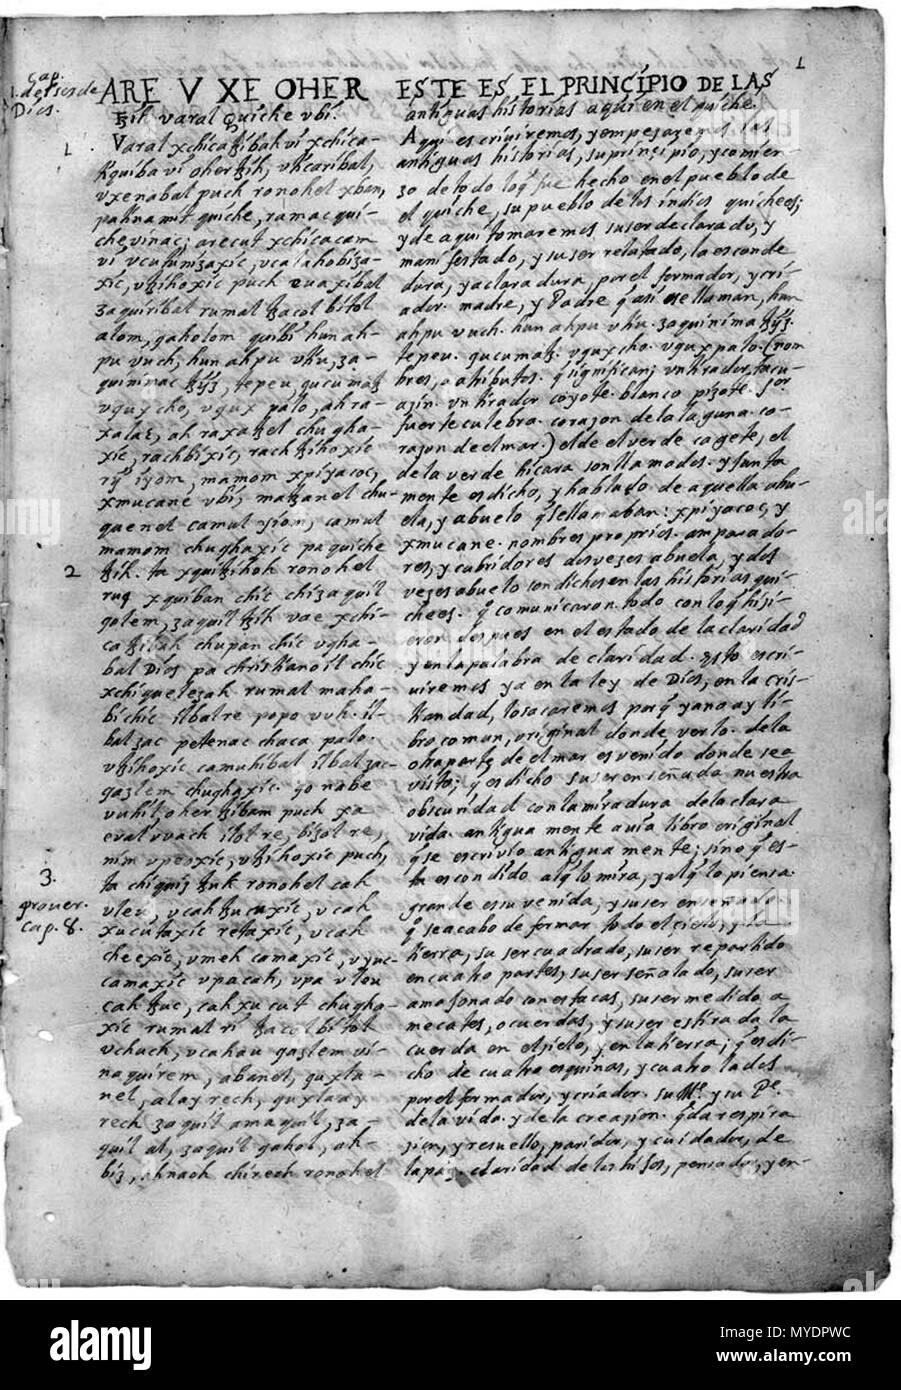 1
Cap.
1. del Gen. de
Dios.
ARE V XE OHER
tzih varal Quiche ubi.
1.
Varal xchicatzibah vi xchica-
tiquiba vi oher tzih, vticaribal,
vxenabal puch ronohel xban,
pa tinamit quiche, ramac qui-
che vinac; arecut xchicacam
vi vcutunizaxic, vcalahobiza-
xic, vtzihoxic puch euaxibal
zaquiribal rumal tzacol bitol
alom, qaholom quibi hun ah-
pu vuch, hun ahpu vtiu, za-
quinimac tzyz, tepeu, qucumatz
vqux cho, vqux palo, ah ra-
xa lac, ah raxa tzel chugha-
xic, rachbixic, rachtzihoxic
rij iyom, mamom xpiyacoc,
xmucane ubi, matzanel chu-
quenel camul iyom, camul
mamom chughaxic pa quiche
2
tzih. ta xquitzihoh ronohel
ruq xquiban chic chi zaquil
qolem, zaquil tzih vae xchi-
catzibah chupan chic vgha-
bal Dios pa christianoil chic
xchiquelezah rumal maha-
bi chic ilbal re popo vuh. il-
bal zac petenac chaca palo.
vtzihoxic camuhibal ilbal zac
qazlem chughaxic. qo nabe
vuhil, oher tzibam puch xa
eval vvach ilol re, bizol re,
nim vpeoxic, vtzihoxic puch,
3.
ta chiquiz tzuk ronohel cah
prouer.
cap. 8.
vleu, vcah tzucuxic, vcah
xucutaxic retaxic, vcah
cheexic, vmeh camaxic, vyuc
camaxic vpacah, vpa vleu
cah tzuc, cah xucut chugha-
xic rumal ri tzacol bitol
vchuch, vcahau qazlem vi-
naquirem, abanel, quxla-
nel, alay rech, quxlaay
rech zaquil amaquil, za-
quil al, zaquil qahol, ah-
biz, ahnaoh chirech ronohel
ESTE ES EL PRINCIPIO DE LAS
antiguas historias aqui en el quiche.
Aqui escriviremos, y empezaremos las
antiguas historias, su principio, y comien-
zo de todo lo q̃ fue hecho en el pueblo de
el quiche, su pueblo de los indios quichees;
y de aqui tomaremos su ser declarado, y
manifestado, y su ser relatado, la esconde
dura, y aclaradura, por el formador, y cri-
ador. madre, y Padre q̃ asi se llaman, hun
ahpu vuch. hun ahpu vtiu. zaquinima tzyz.
tepeu. qucumatz. vqux cho. vqux palo. (nom
bres, o atributos. q̃ significan; vn tirador, tacu-
azin. vn tirador coyote. blanco pizote. sor
fuerte culebra. corazon de la laguna. co-
razon de el mar.) el de el verde cagete, el
de la verde hicara son llamados. y junta
mente es dicho, y hablado de aquella abu-
ela, y abuelo q̃ se llamaban: xpiyacoc, y
xmucane. nombres proprios. amparado-
res, y cubridores dos vezes abuela, y dos
vezes abuelo son dichos en las historias qui-
chees. q̃ comunicaron todo con lo q̃ hizi-
eron despues en el estado de la claridad
y en la palabra de claridad. esto escri-
viremos ya en la ley de Dios, en la cris-
tiandad, lo sacaremos por q̃ ya no ay li-
bro comun, original donde verlo. de la
otra parte de el mar es venido donde sea
visto; q̃ es dicho su ser enseñada nuestra
obscuridad con la miradura de la clara
vida. antiguamente auia libro original
q̃ se escrivio antiguamente; sino q̃ es-
ta escondido al q̃ lo mira, y al q̃ lo piensa.
grande es su venida, y su ser enseñado.
q̃ se acabo de formar todo el cielo, y la
tierra, su ser cuadrado, su ser repartido
en cuatro partes, su ser señalado, su ser
amojonado con estacas, su ser medido a
mecates, o cuerdas, y su ser estirada la
cuerda en el cielo, y en la tierra; q̃ es di-
cho de cuatro esquinas, y cuatro lados
por el formador, y criador. su Me. y su Pe.
de la vida. y de la creazion. q̃ da respira
zion, y resuello, paridor, y cuidador, de
la paz, claridad de los hijos, pensador, y en-
alamy
Image ID: MYDPWC
www.alamy.com